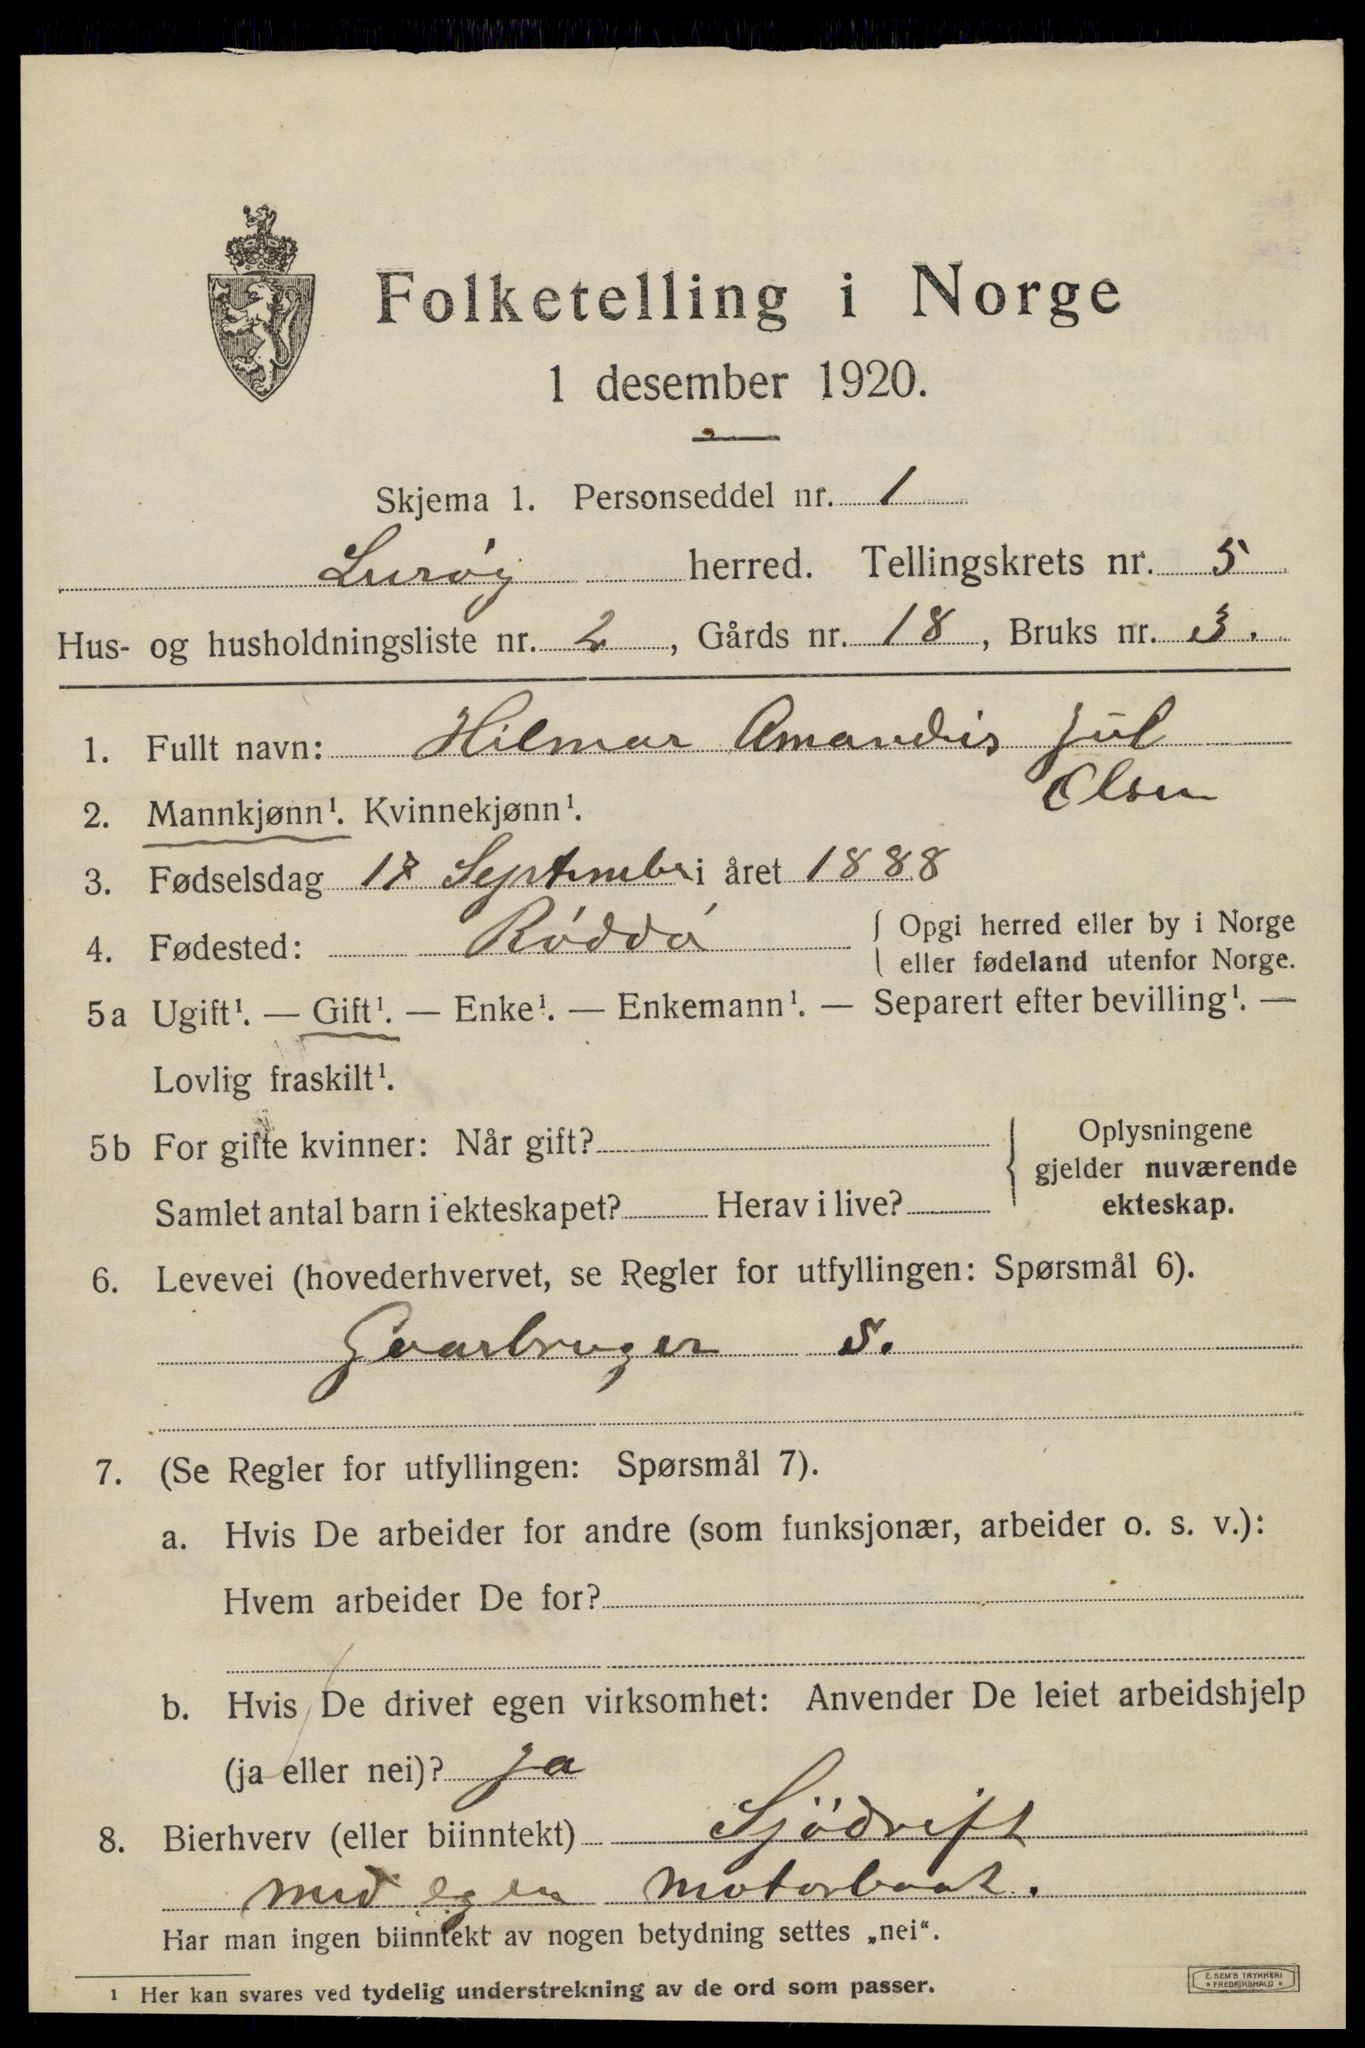 Folketelling i Norge
1 desember 1920.
Skjema 1. Personseddel nr. 1
Lurøy herred. Tellingskrets nr. 5
Hus- og husholdningsliste nr. 2, Gårds nr. 18, Bruks nr. 3.
1. Fullt navn: Hilmar Amandus Jul
Olsen
2. Mannkjønn¹. Kvinnekjønn¹.
3. Fødselsdag September i året 1888
4. Fødested: Röddö { Opgi herred eller by i Norge
eller fødeland utenfor Norge.
5a Ugift¹. — Gift¹. — Enke¹. — Enkemann¹. — Separert efter bevilling¹. —
Lovlig fraskilt¹.
5b For gifte kvinner: Når gift? { Oplysningene
gjelder nuværende
Samlet antal barn i ekteskapet? Herav i live? ekteskap.
6. Levevei (hovederhvervet, se Regler for utfyllingen: Spørsmål 6).
Gaarbruger S.
7. (Se Regler for utfyllingen: Spørsmål 7).
a. Hvis De arbeider for andre (som funksjonær, arbeider o. s. v.):
Hvem arbeider De for?
b. Hvis De driver egen virksomhet: Anvender De leiet arbeidshjelp
(ja eller nei)? Ja
8. Bierhverv (eller biinntekt) Sjödrift
med egen motorbaat.
Har man ingen biinntekt av nogen betydning settes „nei“.
¹ Her kan svares ved tydelig understrekning av de ord som passer.
E. SEM'S TRYKKERI
• FREDRIKSHALD •